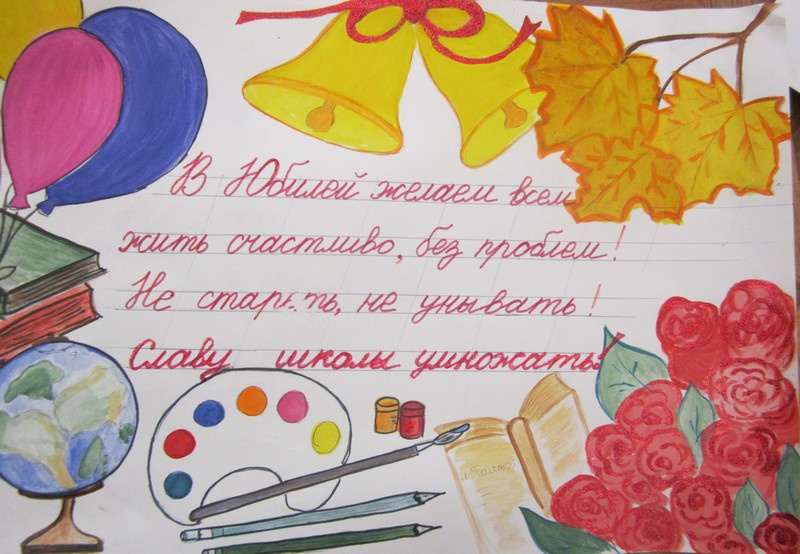 В Юбилей желаем всем
жить счастливо, без проблем!
Не стареть, не унывать!
Славу школы умножать!